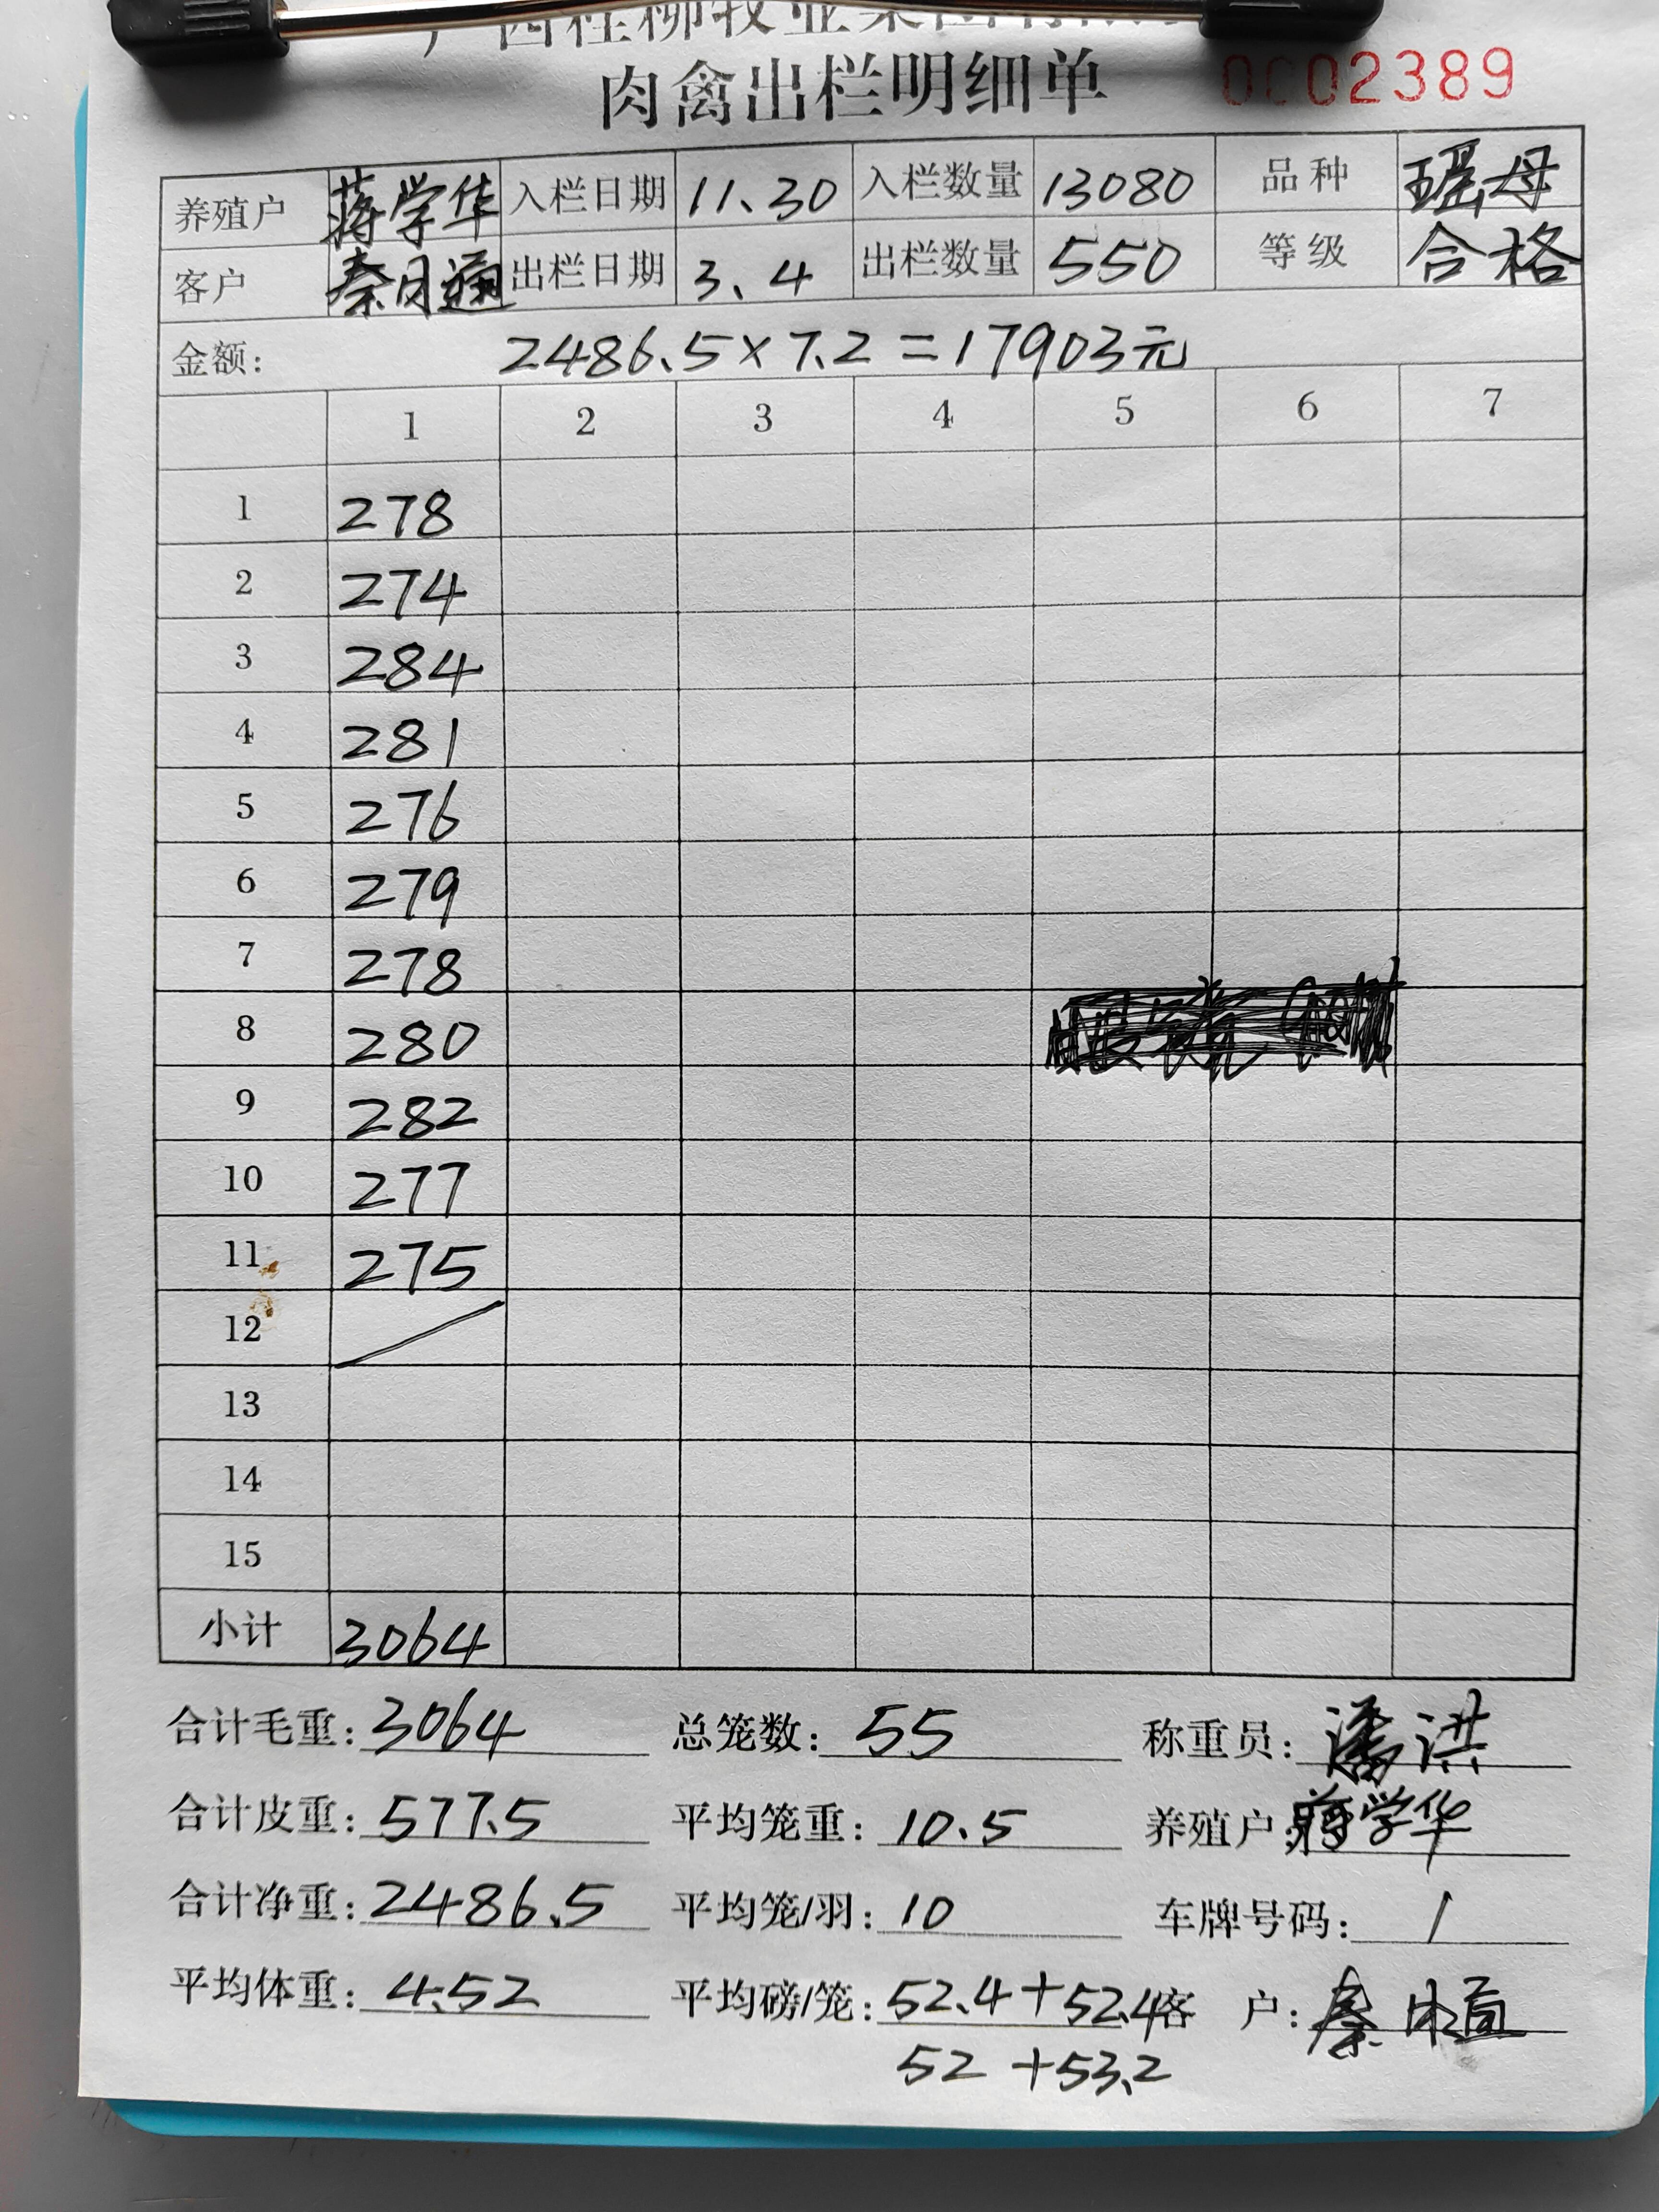 广西桂柳牧业集团有限公
肉禽出栏明细单 0002389
养殖户 蒋学华 入栏日期 11.30 入栏数量 13080 品种 瑶母
客户 秦日通 出栏日期 3.4 出栏数量 550 等级 合格
金额: 2486.5×7.2=17903元
1 2 3 4 5 6 7
1 278
2 274
3 284
4 281
5 276
6 279
7 278
8 280
9 282
10 277
11 275
12 /
13
14
15
小计 3064
合计毛重: 3064 总笼数: 55 称重员: 潘洪
合计皮重: 577.5 平均笼重: 10.5 养殖户: 蒋学华
合计净重: 2486.5 平均笼/羽: 10 车牌号码: /
平均体重: 4.52 平均磅/笼: 52.4+52.4 客 户: 秦
52+53.2